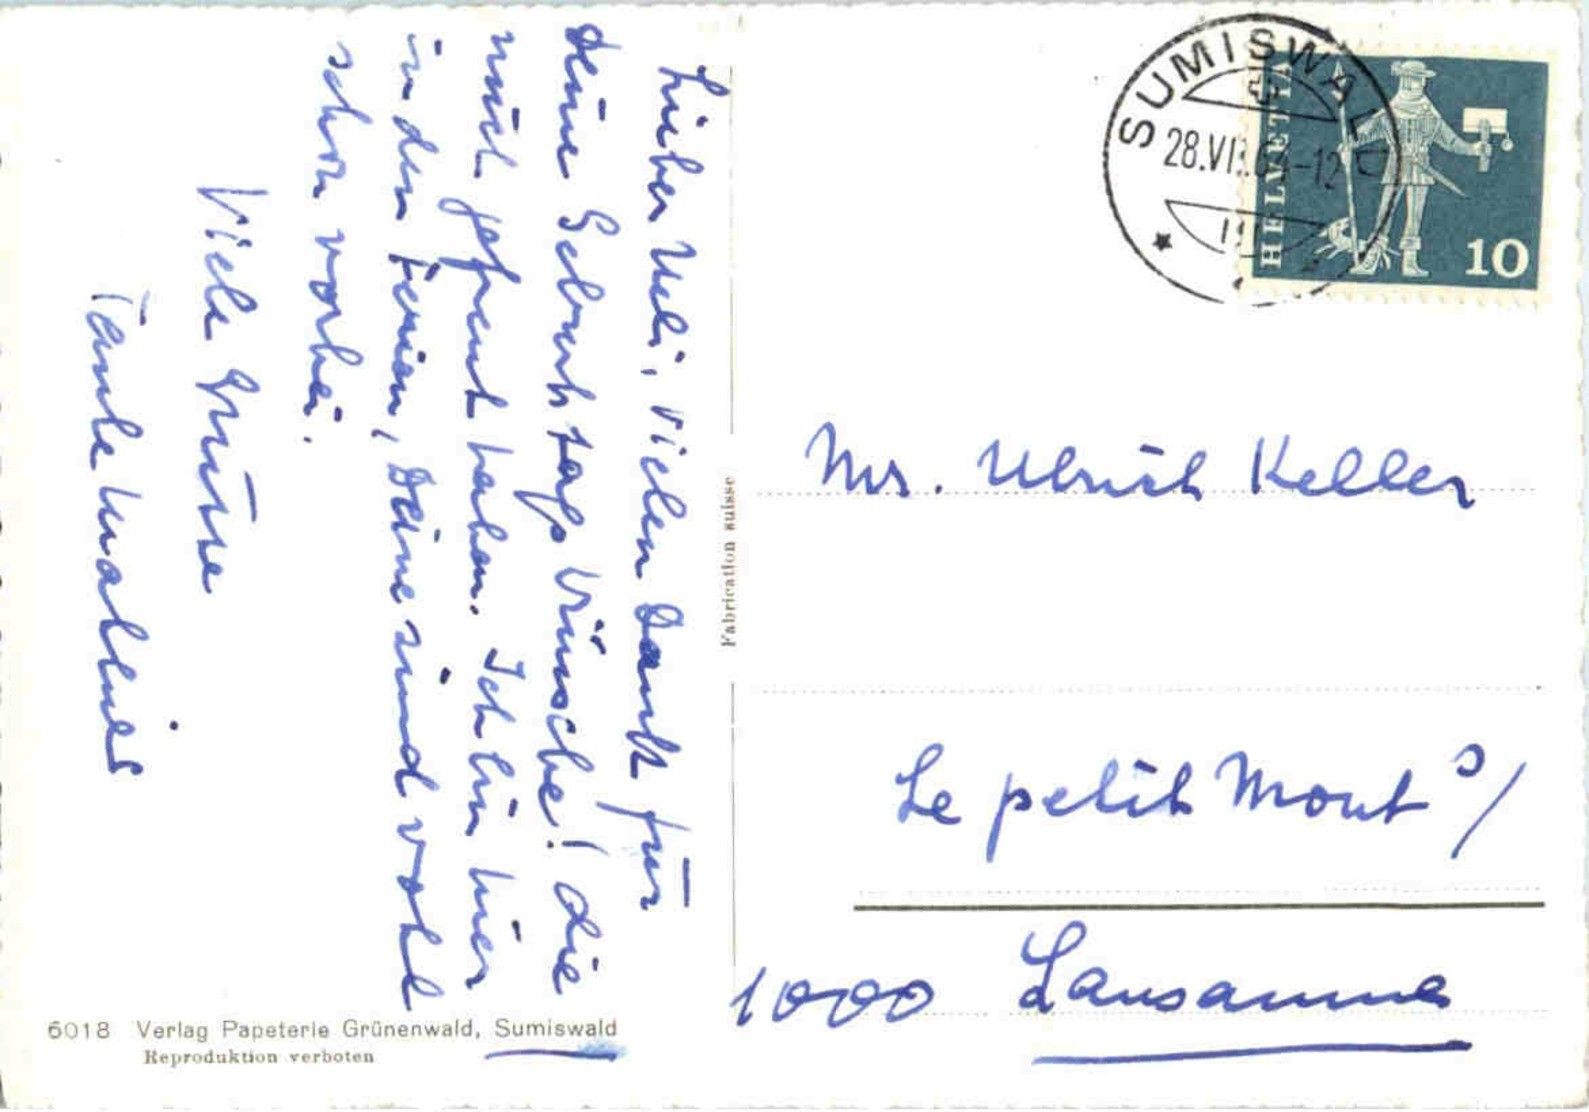 Lieber Ueli, vielen Dank für
Deine Geburtstags Wünsche! die
mich gefreut haben. Ich bin hier
in den Ferien, Deine sind wohl
schon vorbei.
Viele Grüsse
Tante
SUMISWALD
28.VII.
-12
HELVETIA
10
Fabrication suisse
Mr. Ulrich Keller
Le petit Mont s/
1000 Lausanne
6018 Verlag Papeterie Grünenwald, Sumiswald
Reproduktion verboten